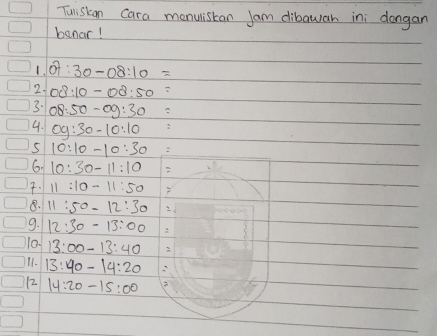 Tuliskan cara menuliskan jam dibawah ini dengan
benar!
1. 07:30-08:10 =
2. 08:10 - 08:50 =
3. 08:50 - 09:30 =
4. 09:30 - 10:10 =
5 10:10 - 10:30 =
6. 10:30 - 11:10 =
7. 11:10 - 11:50 =
8. 11:50 - 12:30 =
9. 12:30 - 13:00 =
10. 13:00 - 13:40 =
11. 13:40 - 14:20 =
12. 14:20 - 15:00 =